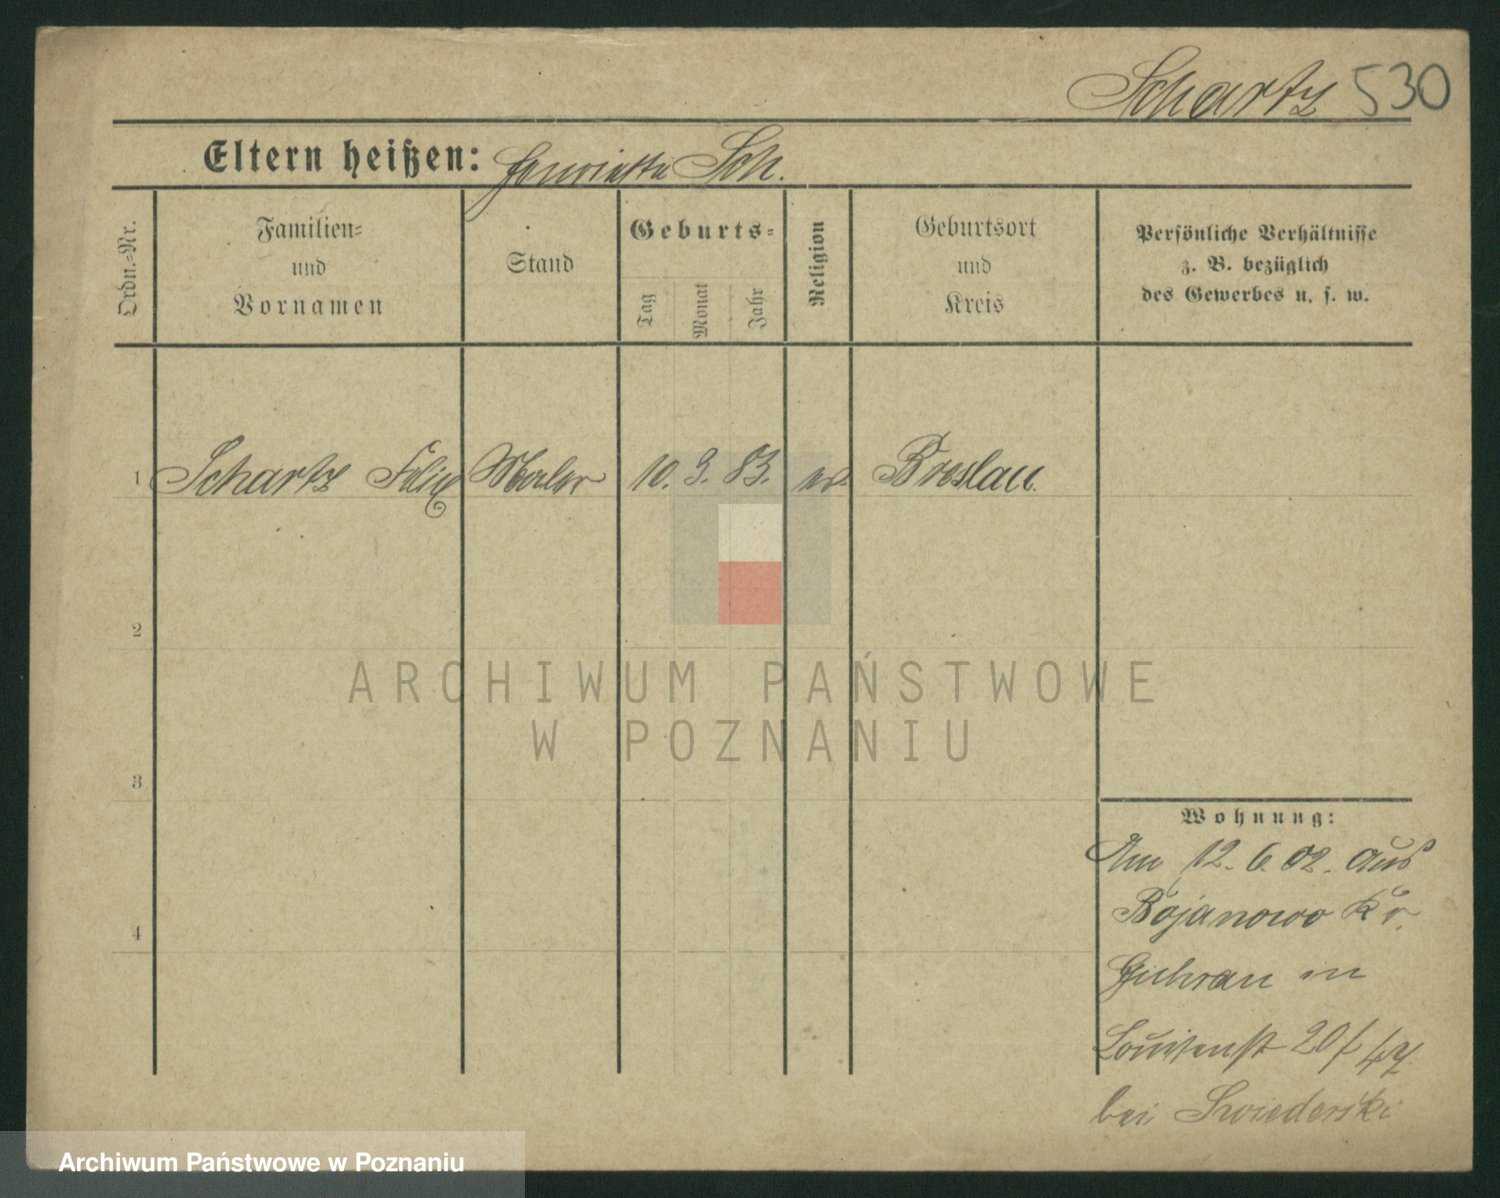 Schartz 530
Eltern heißen: Henriette Sch.
Ordn.-Nr.
Familien-
und
Vornamen
Stand
Geburts-
Tag
Monat
Jahr
Religion
Geburtsort
und
Kreis
Persönliche Verhältnisse
z. B. bezüglich
des Gewerbes u. s. w.
1 Schartz Felix Maler 10. 3. 83. ev. Breslau.
2
ARCHIWUM PAŃSTWOWE
W POZNANIU
3
Wohnung:
Am 12. 6. 02. aus
Bojanowo Kr.
4
Guhrau in
Louisenst 20 f
bei Swiederski
Archiwum Państwowe w Poznaniu